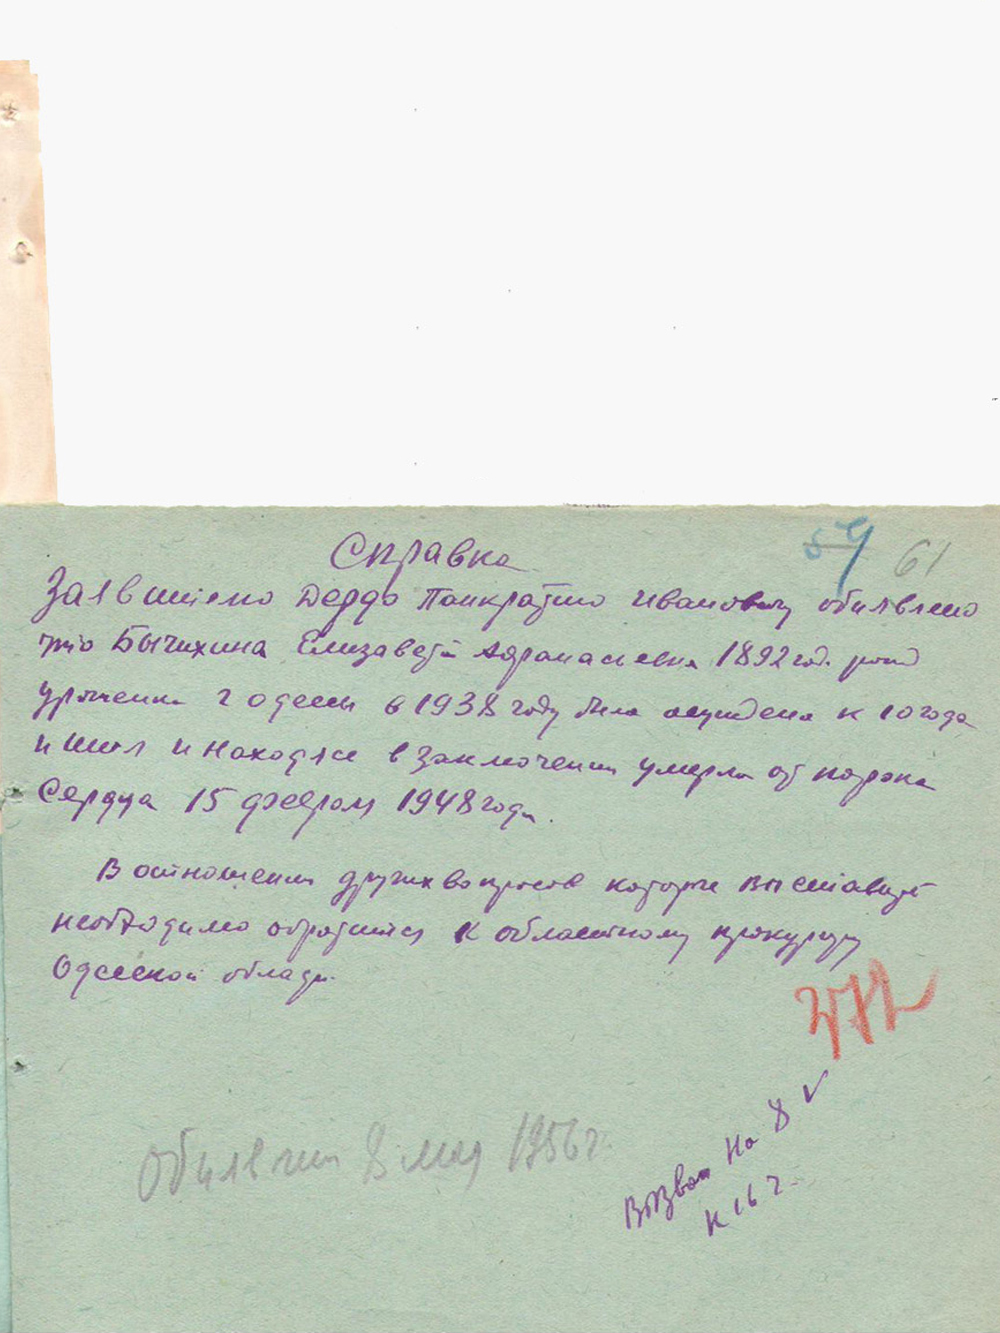 59 61
Справка
Заявителю Дердо Панкратию Ивановичу обиявлено
что Бычихина Елизавета Афанасьевна 1892 год. рожд
уроженка г Одессы в 1938 году была осуждена к 10 годам
и ИТЛ и находясь в заключении умерла от порока
Сердца 15 февраля 1948 года.
В отношении других вопросов которые выставляет
необходимо обратится к областному прокурору
Одесской области.
Обиявил 8 мая 1956 г.
Вызван на 8 V
к 16 ч.